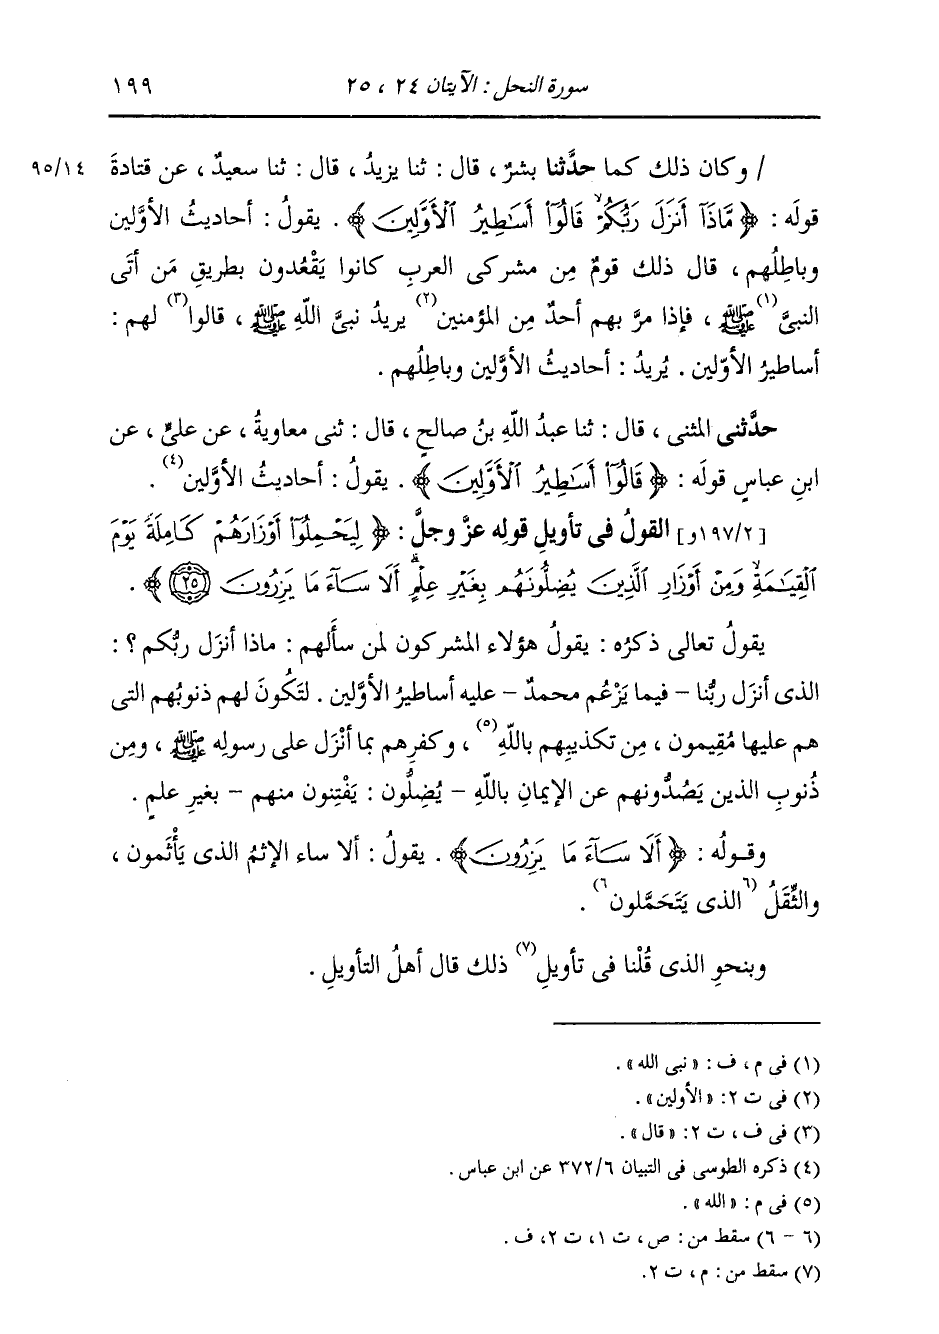 سورة النحل : الآيتان ٢٤ ، ٢٥ ١٩٩
/ وكان ذلك كما حدَّثنا بشرٌ ، قال : ثنا يزيدُ ، قال : ثنا سعيدٌ ، عن قتادةَ ٩٥/١٤
قولَه : ﴿ مَّاذَآ أَنزَلَ رَبُّكُمْۙ قَالُوٓا۟ أَسَـٰطِيرُ ٱلْأَوَّلِينَ ﴾ . يقولُ : أحاديثُ الأوَّلين
وباطِلُهم ، قال ذلك قومٌ مِن مشركى العربِ كانوا يَقْعُدون بطريقِ مَن أتَى
النبىَّ(١) ﷺ ، فإذا مرَّ بهم أحدٌ مِن المؤمنين(٢) يريدُ نبىَّ اللَّهِ ﷺ ، قالوا(٣) لهم :
أساطيرُ الأوّلين . يُريدُ : أحاديثُ الأوَّلين وباطِلُهم .
حدَّثنى المثنى ، قال : ثنا عبدُ اللَّهِ بنُ صالحٍ ، قال : ثنى معاويةُ ، عن علىٍّ ، عن
ابنِ عباسٍ قولَه : ﴿ قَالُوٓا۟ أَسَـٰطِيرُ ٱلْأَوَّلِينَ ﴾ . يقولُ : أحاديثُ الأوَّلين(٤) .
[١٩٧/٢و] القولُ فى تأويلِ قولِه عزَّ وجلَّ : ﴿ لِيَحْمِلُوٓا۟ أَوْزَارَهُمْ كَامِلَةً يَوْمَ
ٱلْقِيَـٰمَةِۙ وَمِنْ أَوْزَارِ ٱلَّذِينَ يُضِلُّونَهُم بِغَيْرِ عِلْمٍۗ أَلَا سَآءَ مَا يَزِرُونَ ٢٥ ﴾ .
يقولُ تعالى ذكرُه : يقولُ هؤلاء المشركون لمن سأَلهم : ماذا أنزَل ربُّكم ؟ :
الذى أنزَل ربُّنا - فيما يَزْعُم محمدٌ - عليه أساطيرُ الأوَّلين . لتَكُونَ لهم ذنوبُهم التى
هم عليها مُقِيمون ، مِن تكذيبِهم باللَّهِ(٥) ، وكفرِهم بما أنْزَل على رسولِه ﷺ ، ومِن
ذُنوبِ الذين يَصُدُّونهم عن الإيمانِ باللَّهِ - يُضِلُّون : يَفْتِنون منهم - بغيرِ علمٍ .
وقولُه : ﴿ أَلَا سَآءَ مَا يَزِرُونَ ﴾ . يقولُ : ألا ساء الإثمُ الذى يَأْثَمون ،
والثِّقَلُ (٦الذى يَتَحَمَّلون٦) .
وبنحوِ الذى قُلْنا فى تأويلِ(٧) ذلك قال أهلُ التأويلِ .
(١) فى م ، ف : « نبى الله » .
(٢) فى ت ٢: « الأولين» .
(٣) فى ف ، ت ٢: « قال » .
(٤) ذكره الطوسى فى التبيان ٣٧٢/٦ عن ابن عباس .
(٥) فى م : « الله » .
(٦ - ٦) سقط من : ص ، ت ١، ت ٢، ف .
(٧) سقط من : م ، ت ٢.